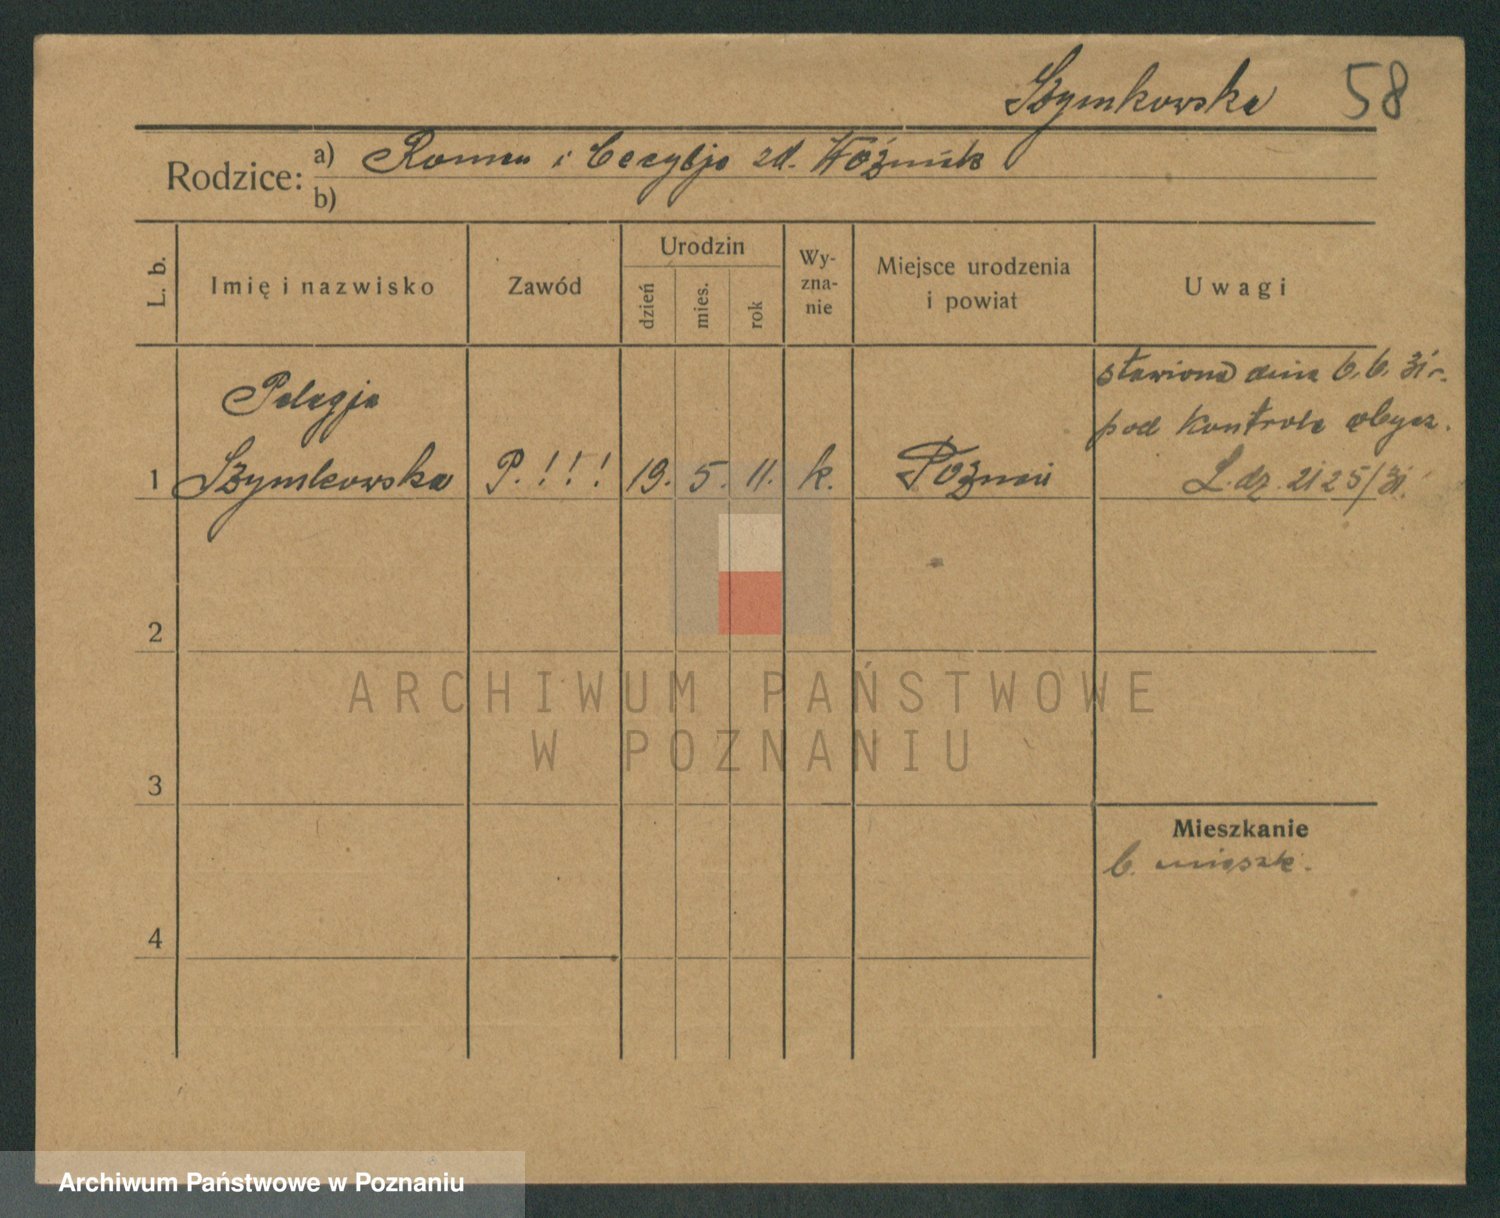 Szymkowska 58
Rodzice: a) Roman i Cecylja zd. Woźniak
b)
L. b. Imię i nazwisko Zawód Urodzin dzień mies. rok Wy-
zna-
nie Miejsce urodzenia
i powiat Uwagi
stawiona dnia 6.6.31 r.
Pelagja
pod kontrolę obycz.
1 Szymkowska P.!!! 19. 5. 11. k. Poznań L. dz. 2125/31.
2
ARCHIWUM PAŃSTWOWE
W POZNANIU
3
Mieszkanie
b. mieszk.
4
Archiwum Państwowe w Poznaniu